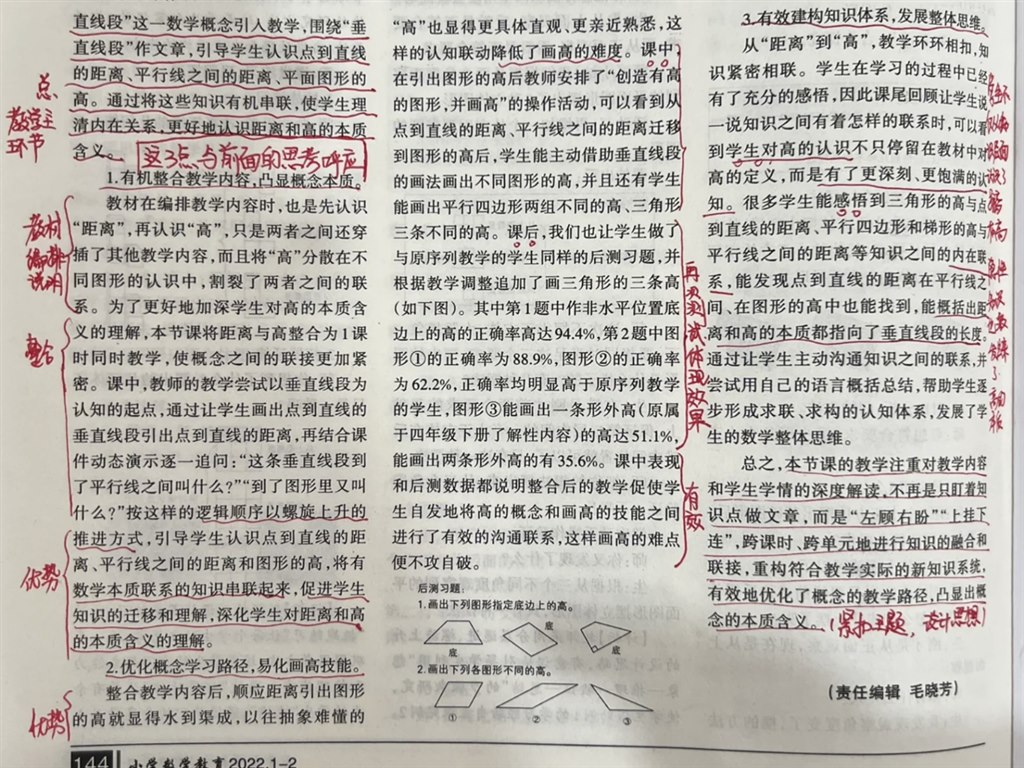 直线段”这一数学概念引入教学，围绕“垂
直线段”作文章，引导学生认识点到直线
的距离、平行线之间的距离、平面图形的
高。通过将这些知识有机串联，使学生理
清内在关系，更好地认识距离和高的本质
含义。
这3点与前面的思考呼应
总
教学主
环节
1.有机整合教学内容，凸显概念本质。
教材在编排教学内容时，也是先认识
“距离”，再认识“高”，只是两者之间还穿
插了其他教学内容，而且将“高”分散在不
同图形的认识中，割裂了两者之间的联
系。为了更好地加深学生对高的本质含
义的理解，本节课将距离与高整合为1课
时同时教学，使概念之间的联接更加紧
密。课中，教师的教学尝试以垂直线段为
认知的起点，通过让学生画出点到直线的
垂直线段引出点到直线的距离，再结合课
件动态演示逐一追问：“这条垂直线段到
了平行线之间叫什么？”“到了图形里又叫
什么？”按这样的逻辑顺序以螺旋上升的
推进方式，引导学生认识点到直线的距
离、平行线之间的距离和图形的高，将有
数学本质联系的知识串联起来，促进学生
知识的迁移和理解，深化学生对距离和高
的本质含义的理解。
教材
编排
说明
整合
优势
2.优化概念学习路径，易化画高技能。
整合教学内容后，顺应距离引出图形
的高就显得水到渠成，以往抽象难懂的
优势
“高”也显得更具体直观、更亲近熟悉，这
样的认知联动降低了画高的难度。课中，
在引出图形的高后教师安排了“创造有高
的图形，并画高”的操作活动，可以看到从
点到直线的距离、平行线之间的距离迁移
到图形的高后，学生能主动借助垂直线段
的画法画出不同图形的高，并且还有学生
能画出平行四边形两组不同的高、三角形
三条不同的高。课后，我们也让学生做了
与原序列教学的学生同样的后测习题，并
根据教学调整追加了画三角形的三条高
（如下图）。其中第1题中作非水平位置底
边上的高的正确率高达94.4%，第2题中图
形①的正确率为88.9%，图形②的正确率
为62.2%，正确率均明显高于原序列教学
的学生，图形③能画出一条形外高（原属
于四年级下册了解性内容）的高达51.1%，
能画出两条形外高的有35.6%。课中表现
和后测数据都说明整合后的教学促使学
生自发地将高的概念和画高的技能之间
进行了有效的沟通联系，这样画高的难点
便不攻自破。
再次测试体现效果
有效
后测习题：
1.画出下列图形指定底边上的高。
底
底
底
2.画出下列各图形不同的高。
①
②
③
3.有效建构知识体系，发展整体思维。
从“距离”到“高”，教学环环相扣，知
识紧密相联。学生在学习的过程中已经
有了充分的感悟，因此课尾回顾让学生说
一说知识之间有着怎样的联系时，可以看
到学生对高的认识不只停留在教材中对
高的定义，而是有了更深刻、更饱满的认
知。很多学生能感悟到三角形的高与点
到直线的距离、平行四边形和梯形的高与
平行线之间的距离等知识之间的内在联
系，能发现点到直线的距离在平行线之
间、在图形的高中也能找到，能概括出距
离和高的本质都指向了垂直线段的长度。
通过让学生主动沟通知识之间的联系，并
尝试用自己的语言概括总结，帮助学生逐
步形成求联、求构的认知体系，发展了学
生的数学整体思维。
总之，本节课的教学注重对教学内容
和学生学情的深度解读，不再是只盯着知
识点做文章，而是“左顾右盼”“上挂下
连”，跨课时、跨单元地进行知识的融合和
联接，重构符合教学实际的新知识系统，
有效地优化了概念的教学路径，凸显出概
念的本质含义。
（紧扣主题，设计思想）
（责任编辑 毛晓芳）
144 小学数学教育2022.1-2